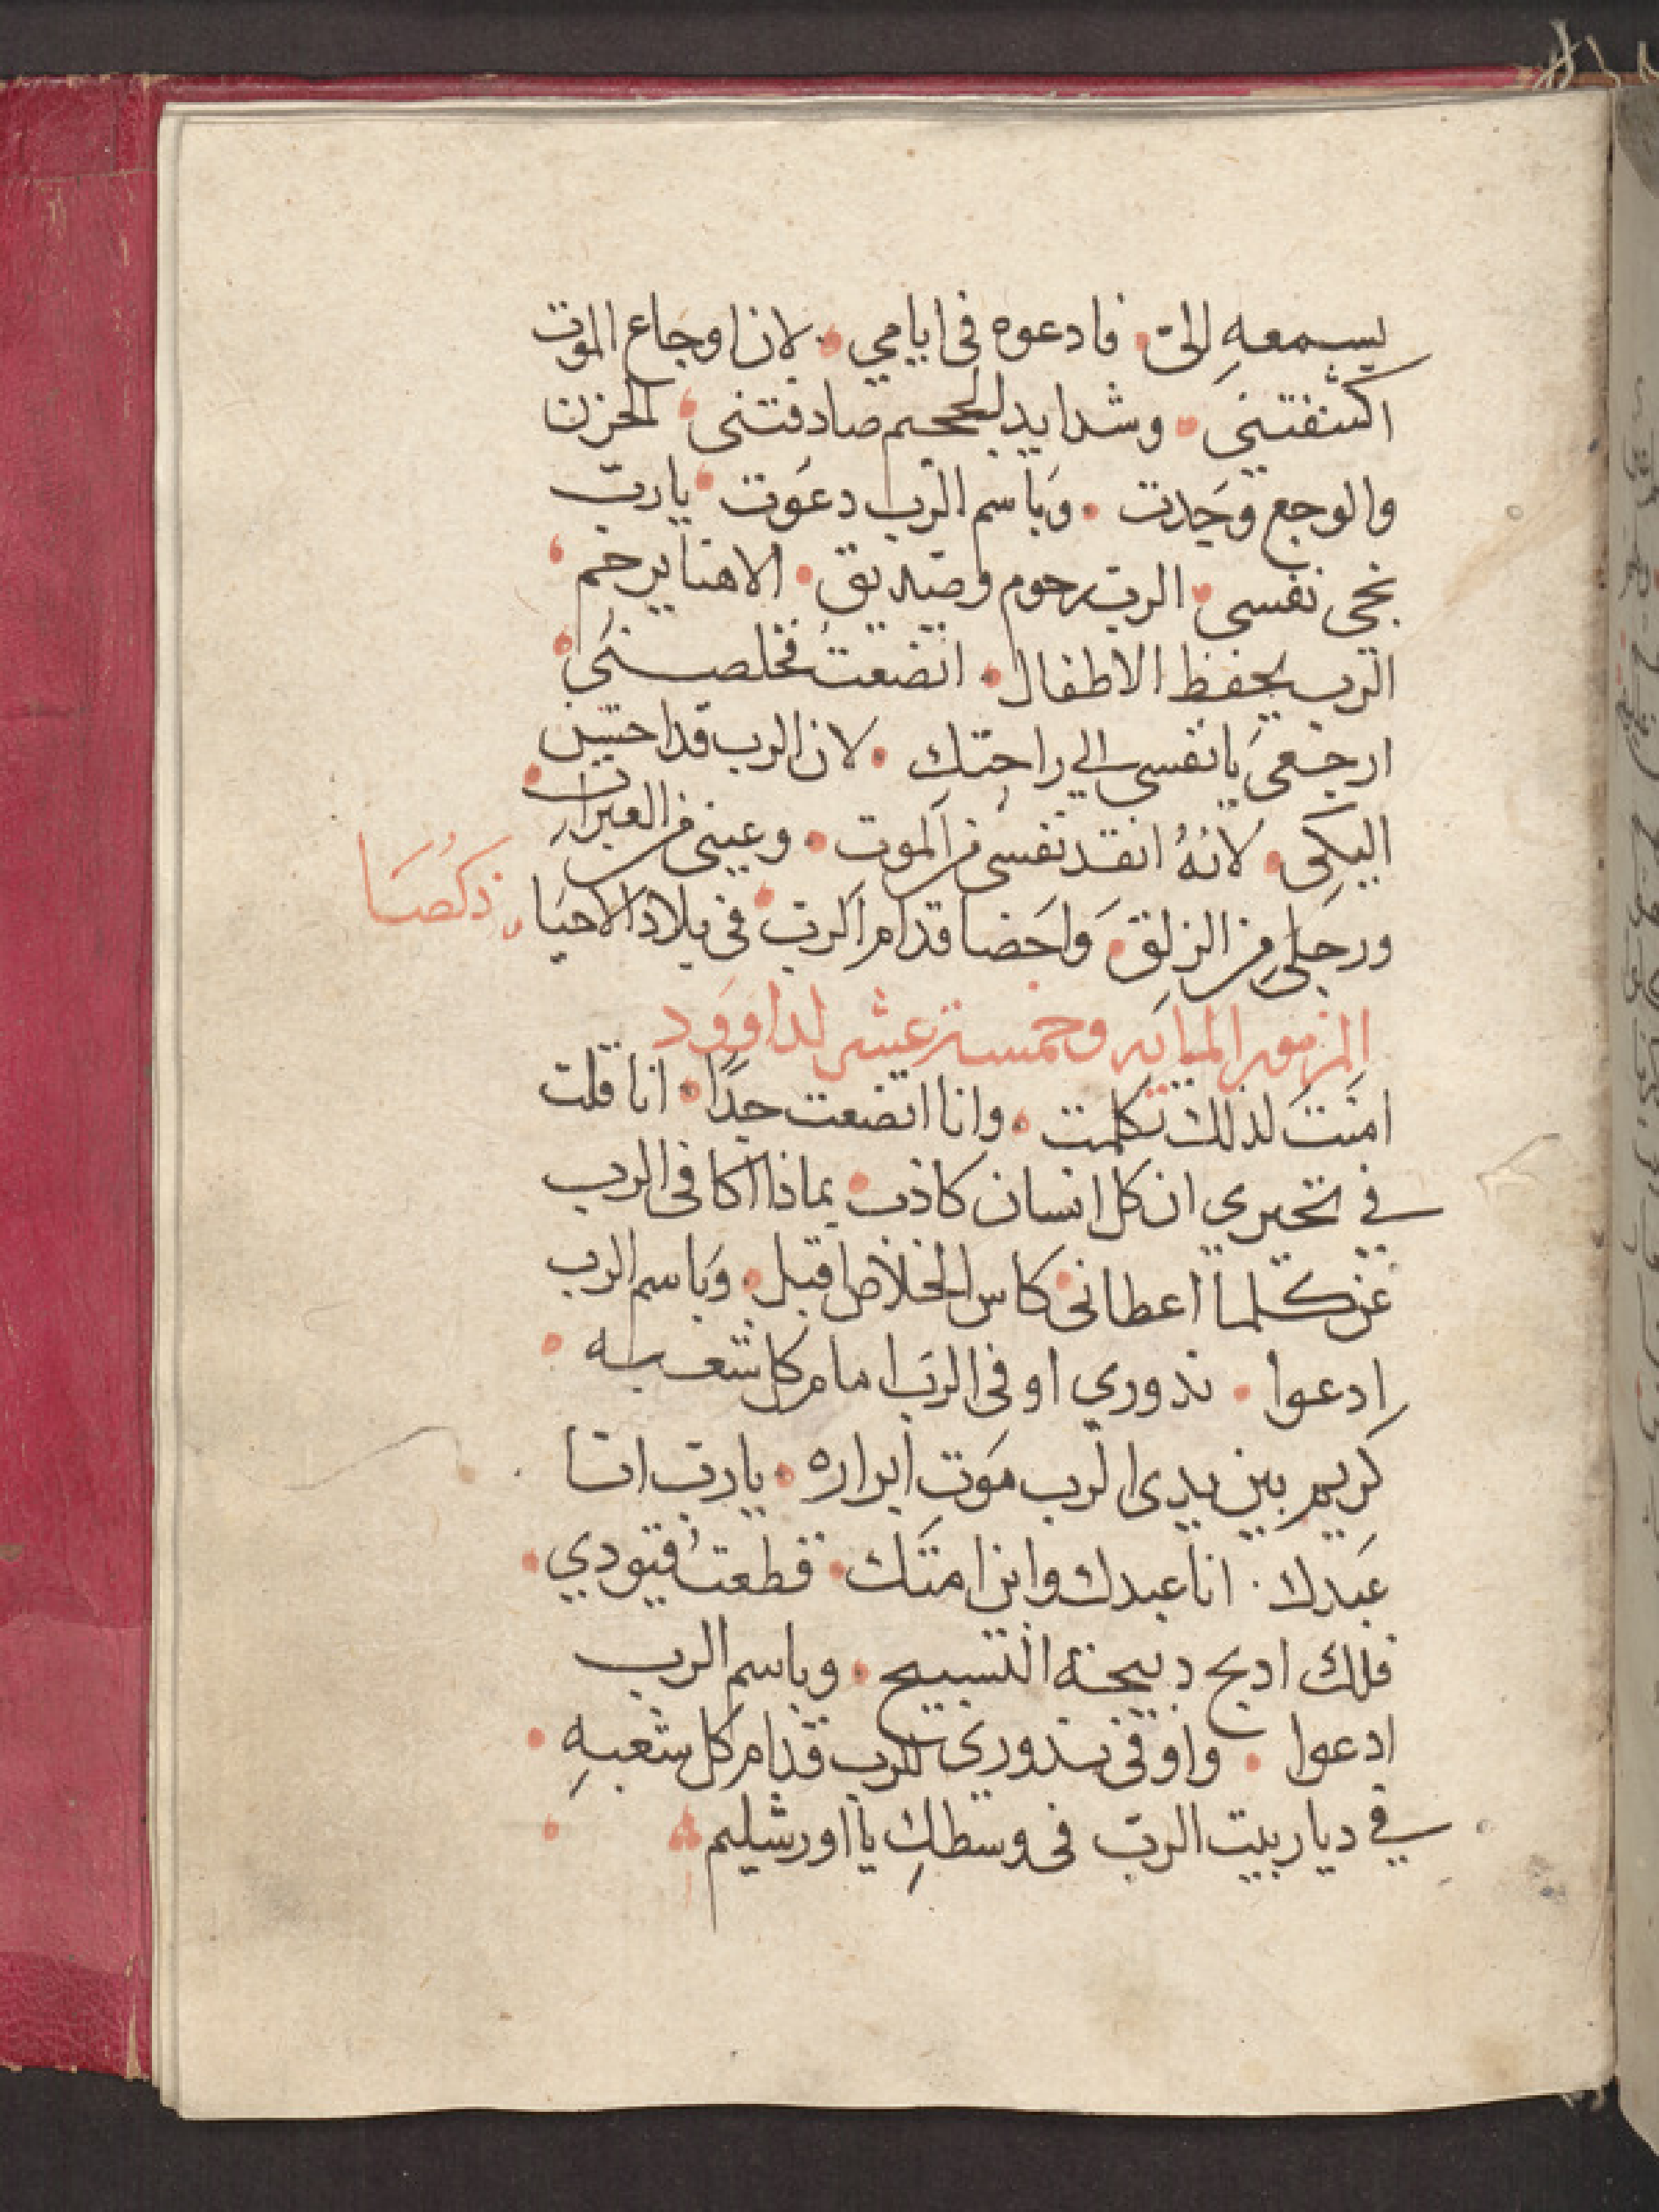 بسمعهِ اليّ • فادعوه فى ايامي • لان اوجاع الموت
اكتنفتنى • وشدايد الجحيم صادفتنى • الحزن
والوجع وَجَدت • وَباسم الرب دعَوت • يارب
نجى نفسى • الرب رحوم وصديق • الاهنا يرحم •
الرب يحفظ الاطفال • اتضعتُ فخلصنى •
ارجعىَ يا نفسى الي راحتكِ • لان الرب قد احسن
اليكى • لانهُ انقد نفسى من الموت • وعينى من العبراتِ •
ورجلى من الزلق • وَاحَضا قدام الرب • فى بلاد الاحيا • ذكصَا
المزمور المايه وخمسة عشر لداوود
امَنتَ لذلك تكلمت • وانا اتضعت جدًا • انا قلت
في تحيري ان كل انسان كاذب • بماذا اكافى الرب
عن كلما اعطانى • كاس الخلاص اقبل • وَباسم الرب
ادعوا • نذوري اوفى الرَب امام كل شعبه •
كريم بين يدى الرب مَوت ابراره • يارب انا
عَبدك • انا عبدك وابن امتَك • قطعتَ قيودي •
فلك ادبح دبيحة التسبيح • وباسم الرب
ادعوا • واوفى نذورىَ للرب قدام كل شعبهِ •
في ديار بيت الربّ فى وسطكِ يا اورشليم •